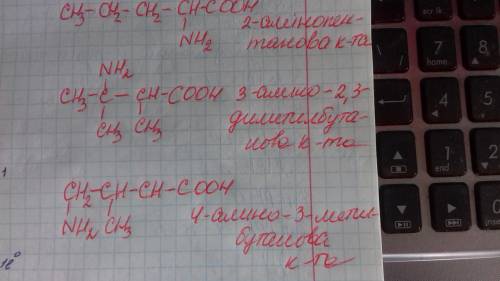 CH₃-CH₂-CH₂-CH-COOH
NH₂
2-амінопен-
танова к-та
NH₂
CH₃-C-CH-COOH
CH₃ CH₃
3-аміно-2,3-
диметилбута-
нова к-та
1
CH₂-CH-CH-COOH
NH₂ CH₃
4-аміно-3-метил-
бутанова
к-та
12°
scr lk
7
home
8
9
4
5
1
end
2
0
ins